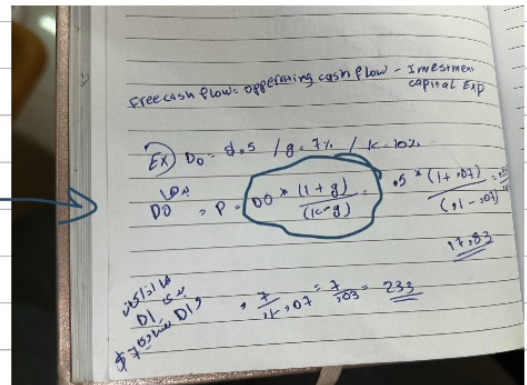 Free cash flow = opperating cash flow - Investment
capital Exp
EX) D0 = $.5 / g = 7% / k = 10%
D0 = P = D0 * (1 + g) / (k - g) = .5 * (1 + .07) / (.1 - .07) =
17.83
D1
D1
$7
= 7 / .1 - .07 = 7 / .03 = 233